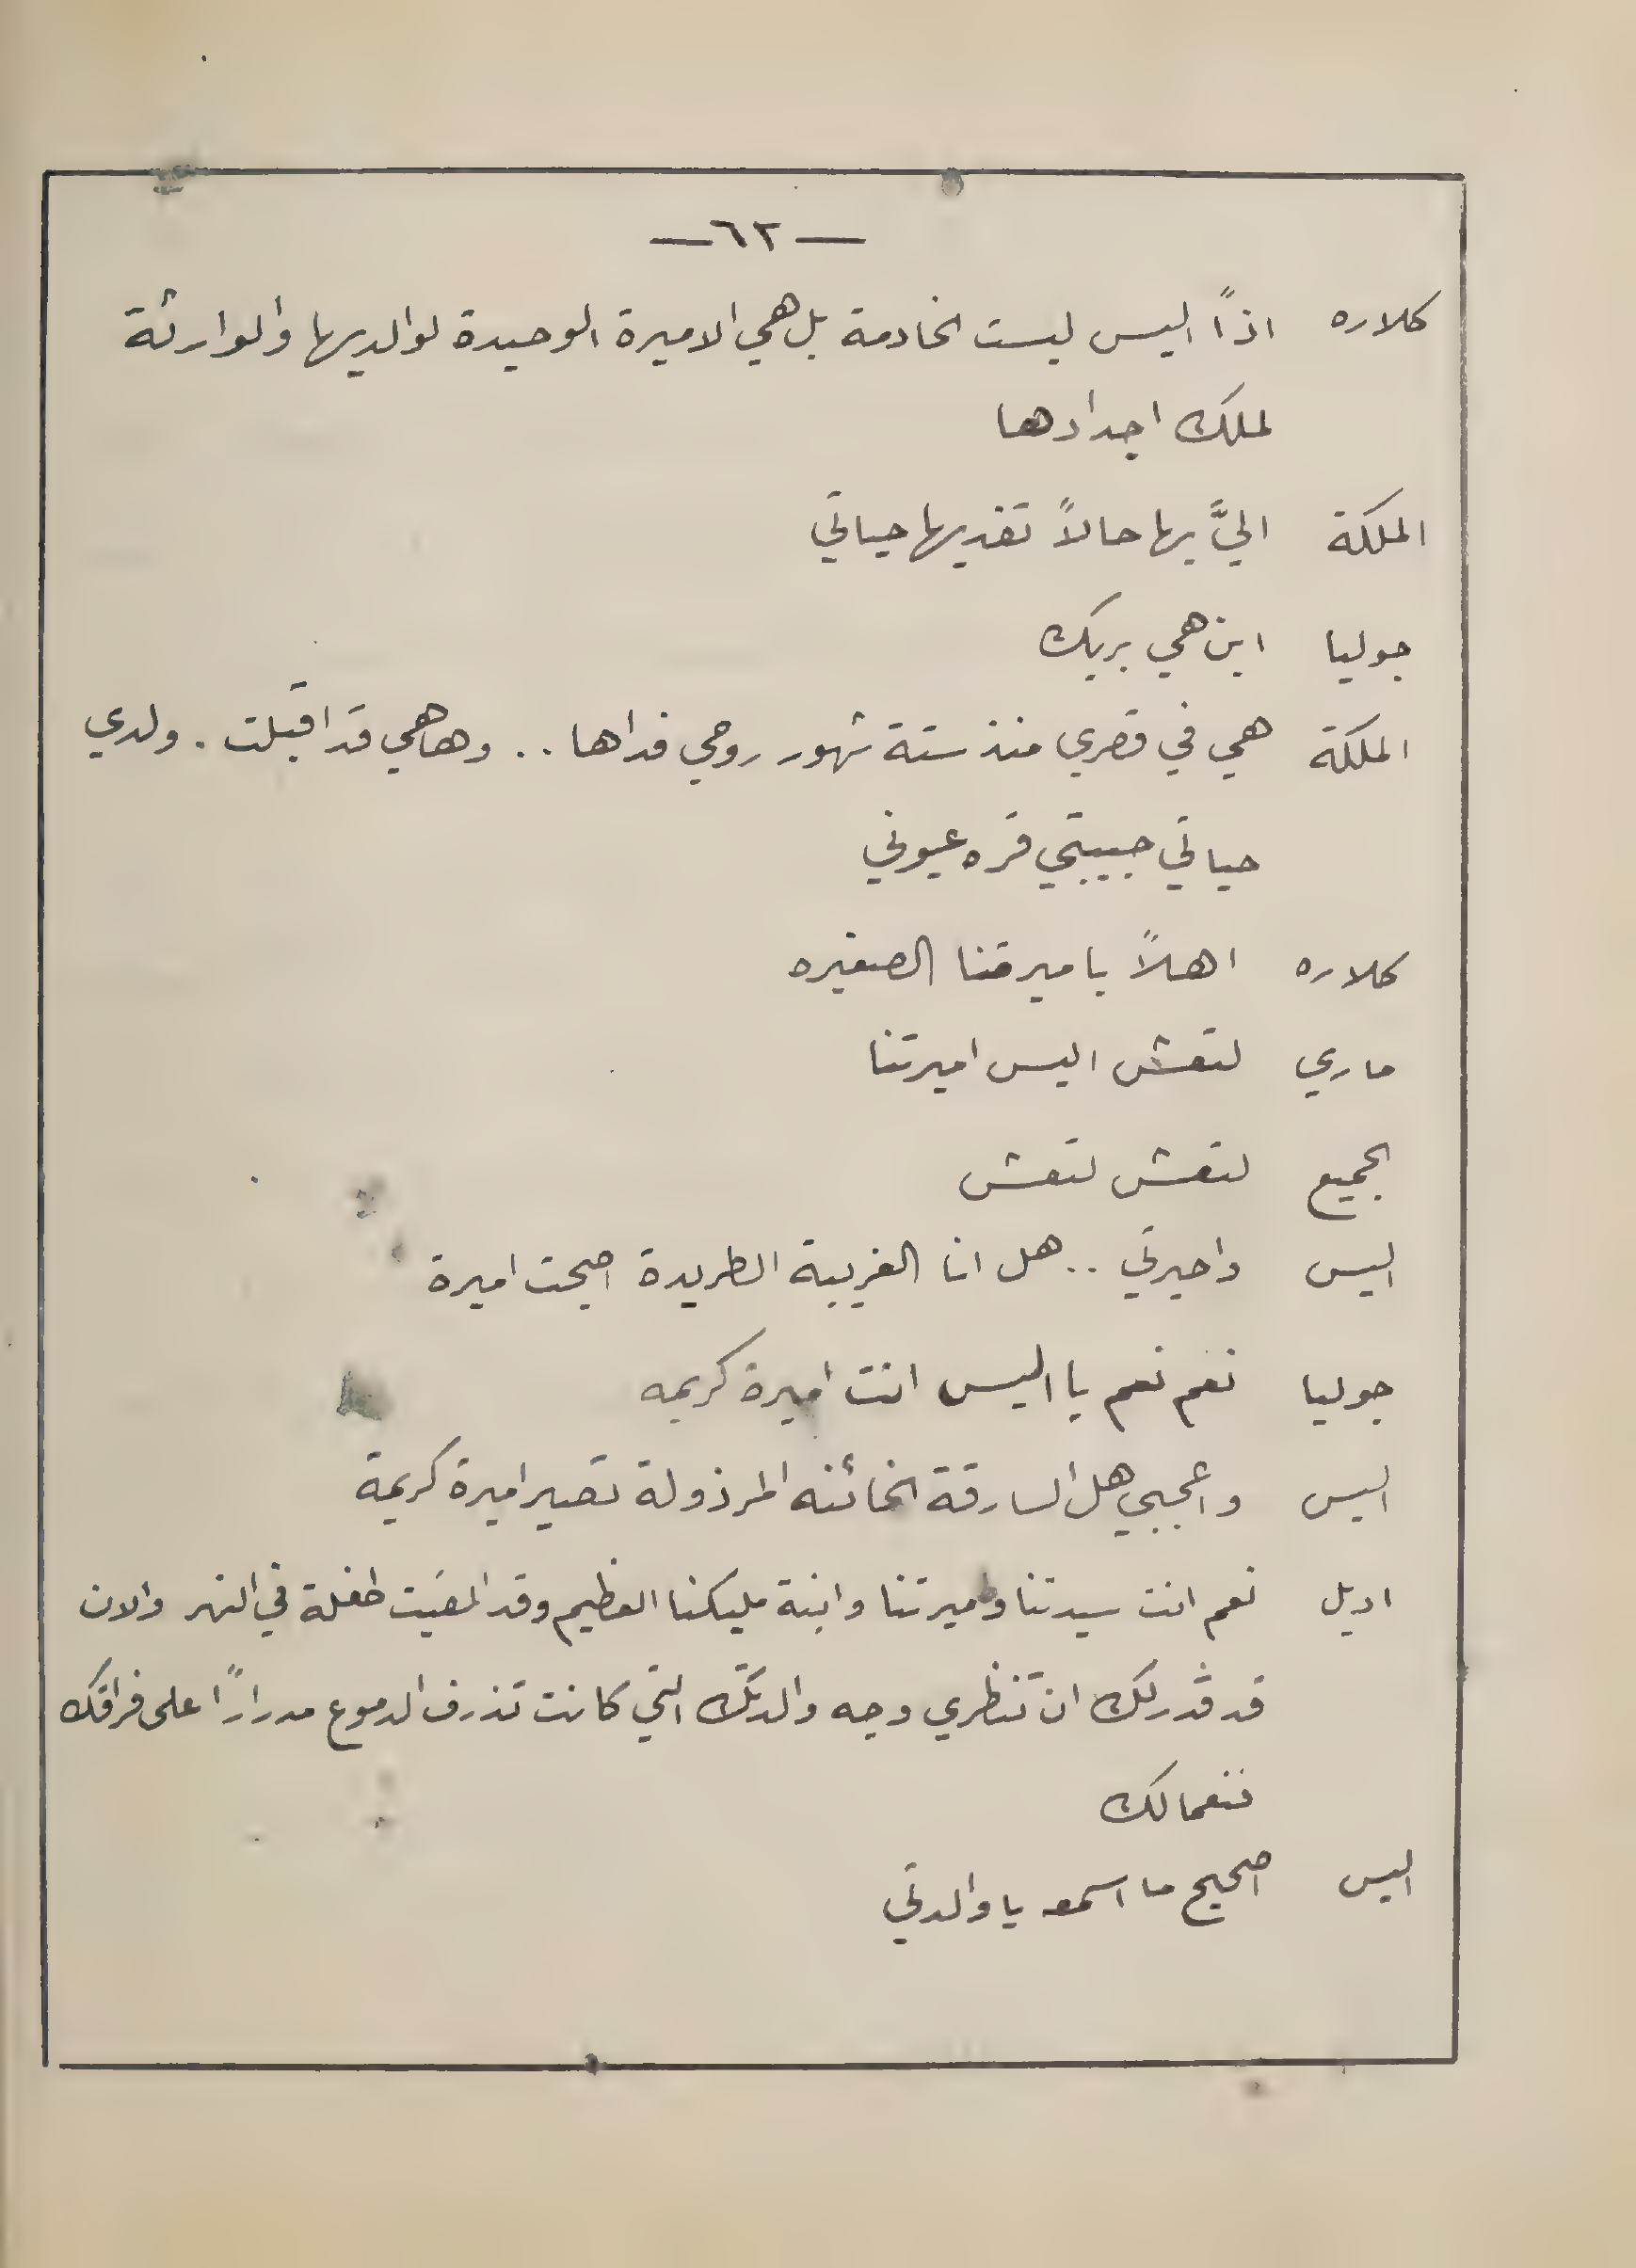 —٦٢—
كلاره اذاً اليس ليست الخادمة بل هي الاميرة الوحيدة لوالديها والوارثة
لملك اجدادها
الملكة اليَّ بها حالاً تفديها حياتي
جوليا اين هي بربك
الملكة هي في قصري منذ ستة شهور روحي فداها .. وها هي قد اقبلت . ولدي
حياتي حبيبتي قره عيوني
كلاره اهلاً باميرتنا الصغيره
ماري لتعش اليس اميرتنا
الجميع لتعش لتعش
اليس واحيرتي .. هل انا الغريبة الطريدة اصبحت اميرة
جوليا نعم نعم يا اليس انت اميرة كريمه
اليس واعجبي هل السارقة الخائنه المرذولة تصير اميرة كريمة
اديل نعم انت سيدتنا واميرتنا وابنة مليكنا العظيم وقد القيت طفلة في النهر والان
قد قدر لك ان تنظري وجه والدتك التي كانت تذرف الدموع مدراراً على فراقك
فنعما لك
اليس اصحيح ما اسمعه يا والدتي